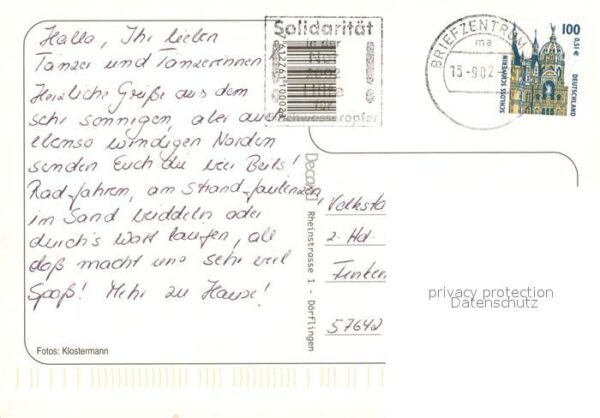 Hallo, Ihr lieben
Tänzer und Tänzerinnen!
Herzliche Grüße aus dem
sehr sonnigen, aber auch
ebenso windigen Norden
senden Euch die vier Beils!
Radfahren, am Strand faulenzen,
im Sand buddeln oder
durch's Watt laufen, all
daß macht uns sehr viel
Spaß! Mehr zu Hause!
Fotos: Klostermann
Solidarität
in der
Not
2002
Hilfe
für
Hochwasseropfer
BRIEFZENTRUM
ma
13-9.02
100
0,51€
SCHLOSS SCHWERIN
DEUTSCHLAND
Rheinstrasse 1 - Dörflingen
Volksta
2. Hd.
57642
privacy protection
Datenschutz